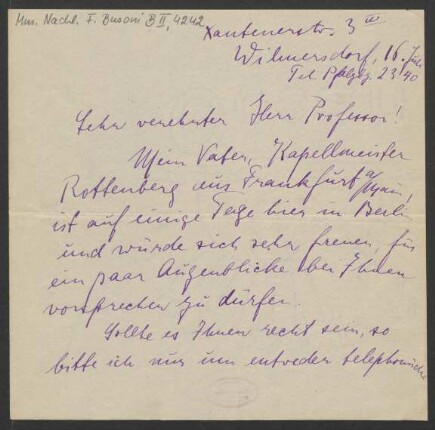 Mus. Nachl. F. Busoni B II, 4242
Xantenerstr. 3 III
Wilmersdorf, 16. Juli
Tel Pfalzbg. 23 40
Sehr verehrter Herr Professor!
Mein Vater, Kapellmeister
Rottenberg aus Frankfurt a/Main,
ist auf einige Tage hier in Berlin
und würde sich sehr freuen, für
ein paar Augenblicke bei Ihnen
vorsprechen zu dürfen.
Sollte es Ihnen recht sein, so
bitte ich nur um entweder telephonische